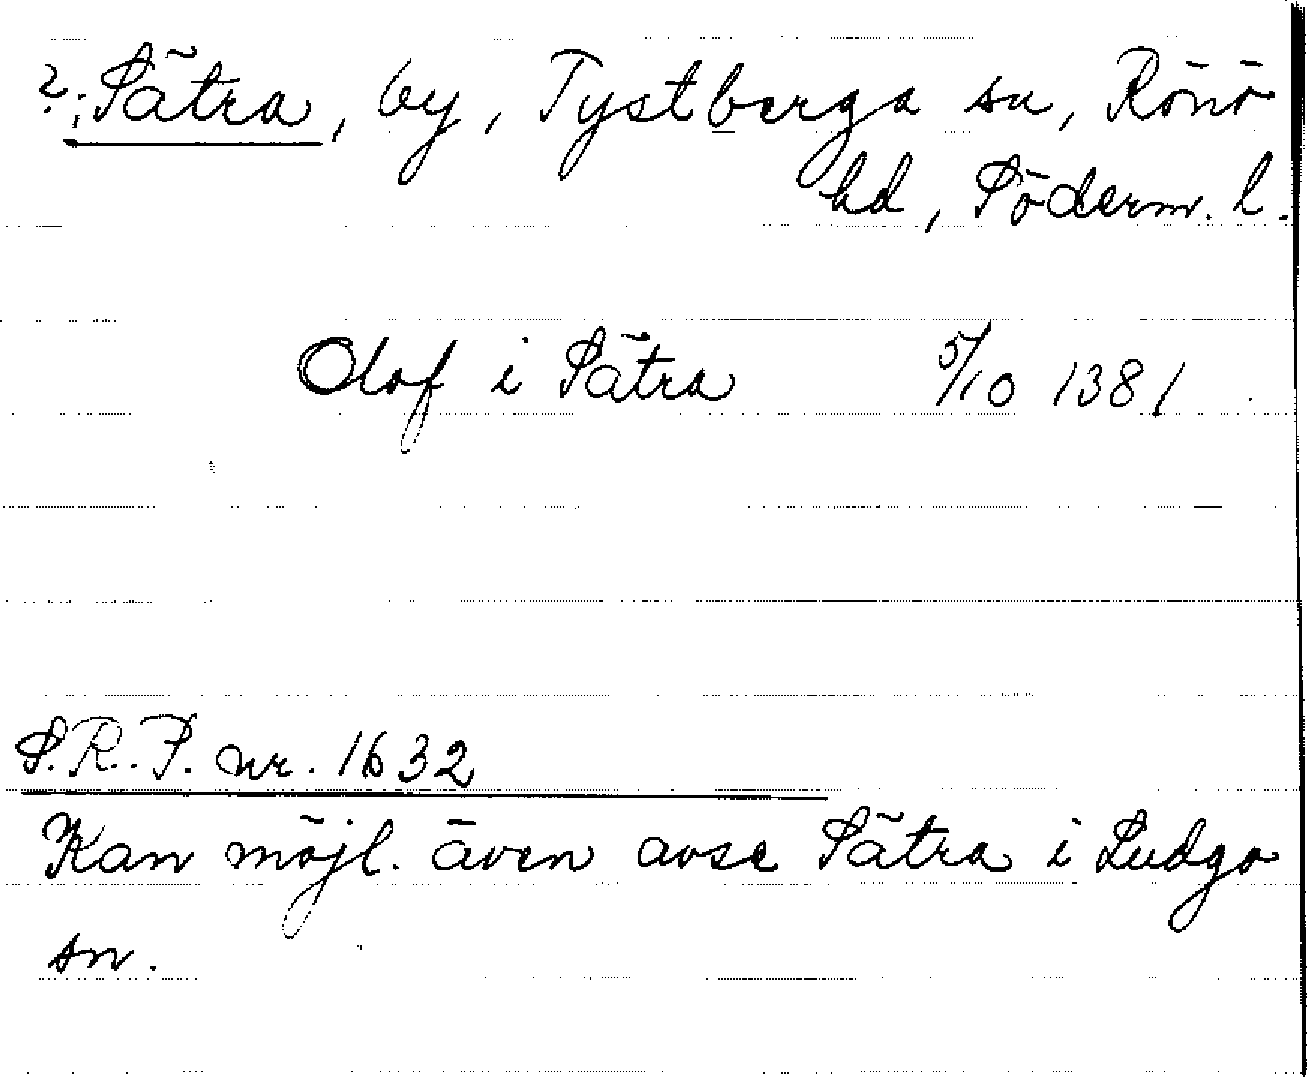 ?: Sätra, by, Tystberga sn, Rönö
hd, Söderm. l.
Olof i Sätra 5/10 1381
S.R.P. nr. 1632
Kan möjl. även avse Sätra i Ludgo
sn.